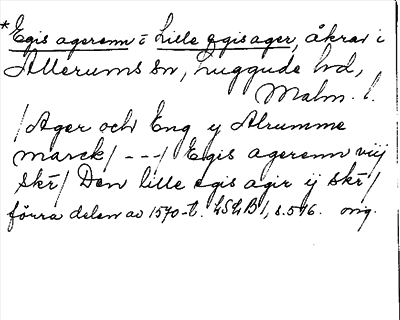 *Egis agerenn = Lille Egis ager, åkrar i
Allerums sn, Luggude hd,
Malm. l.
/Ager och Eng y Alrumme
marck/ ---/ Egis agerenn viij
skr/ Den lille egis agir ij skr/
förra delen av 1570-t. LSLB1, s.546. orig.